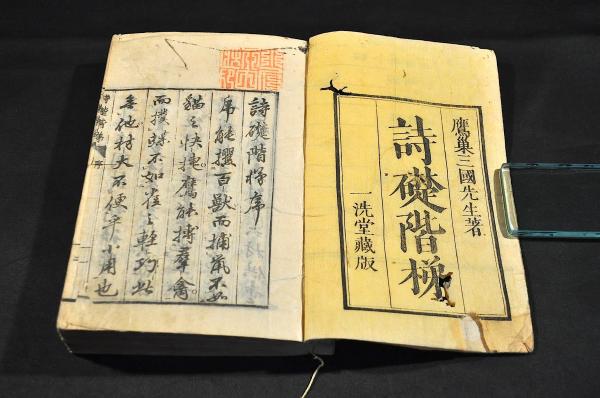 鷹巢三國先生著
詩礎階梯
一洗堂藏版
詩礎階梯序
虎能攫百獸而捕鼠不如
貓之快捷鷹能搏羣禽
而撲不如雀之輕巧此
無他材大不便乎小用也